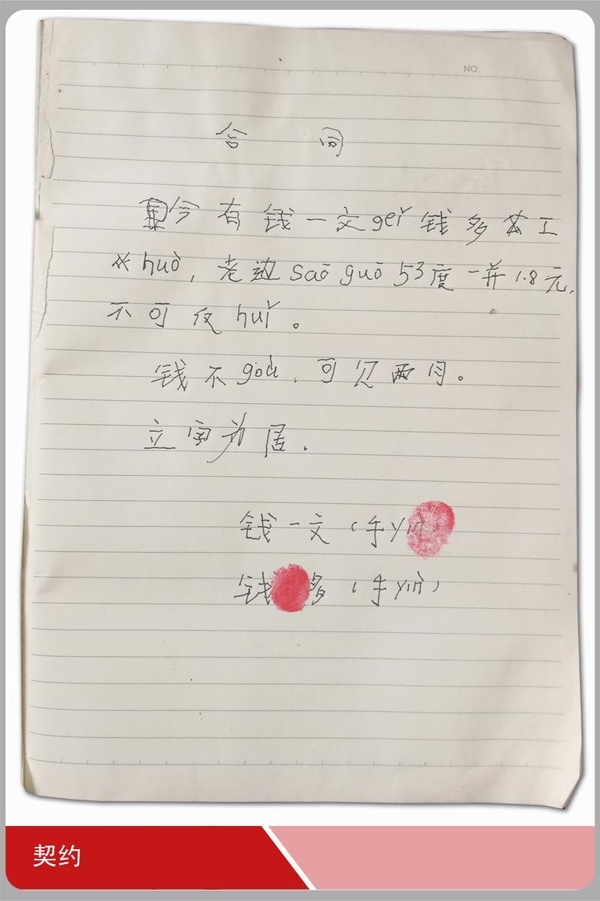 NO.
合 同
今有钱一文geǐ钱多苦工
火huò,老边Saō guō 53度一并1.8元,
不可反huǐ。
钱不goù,可见两月。
立字为居.
钱一文(手yìn)
钱多(手yìn)
契约